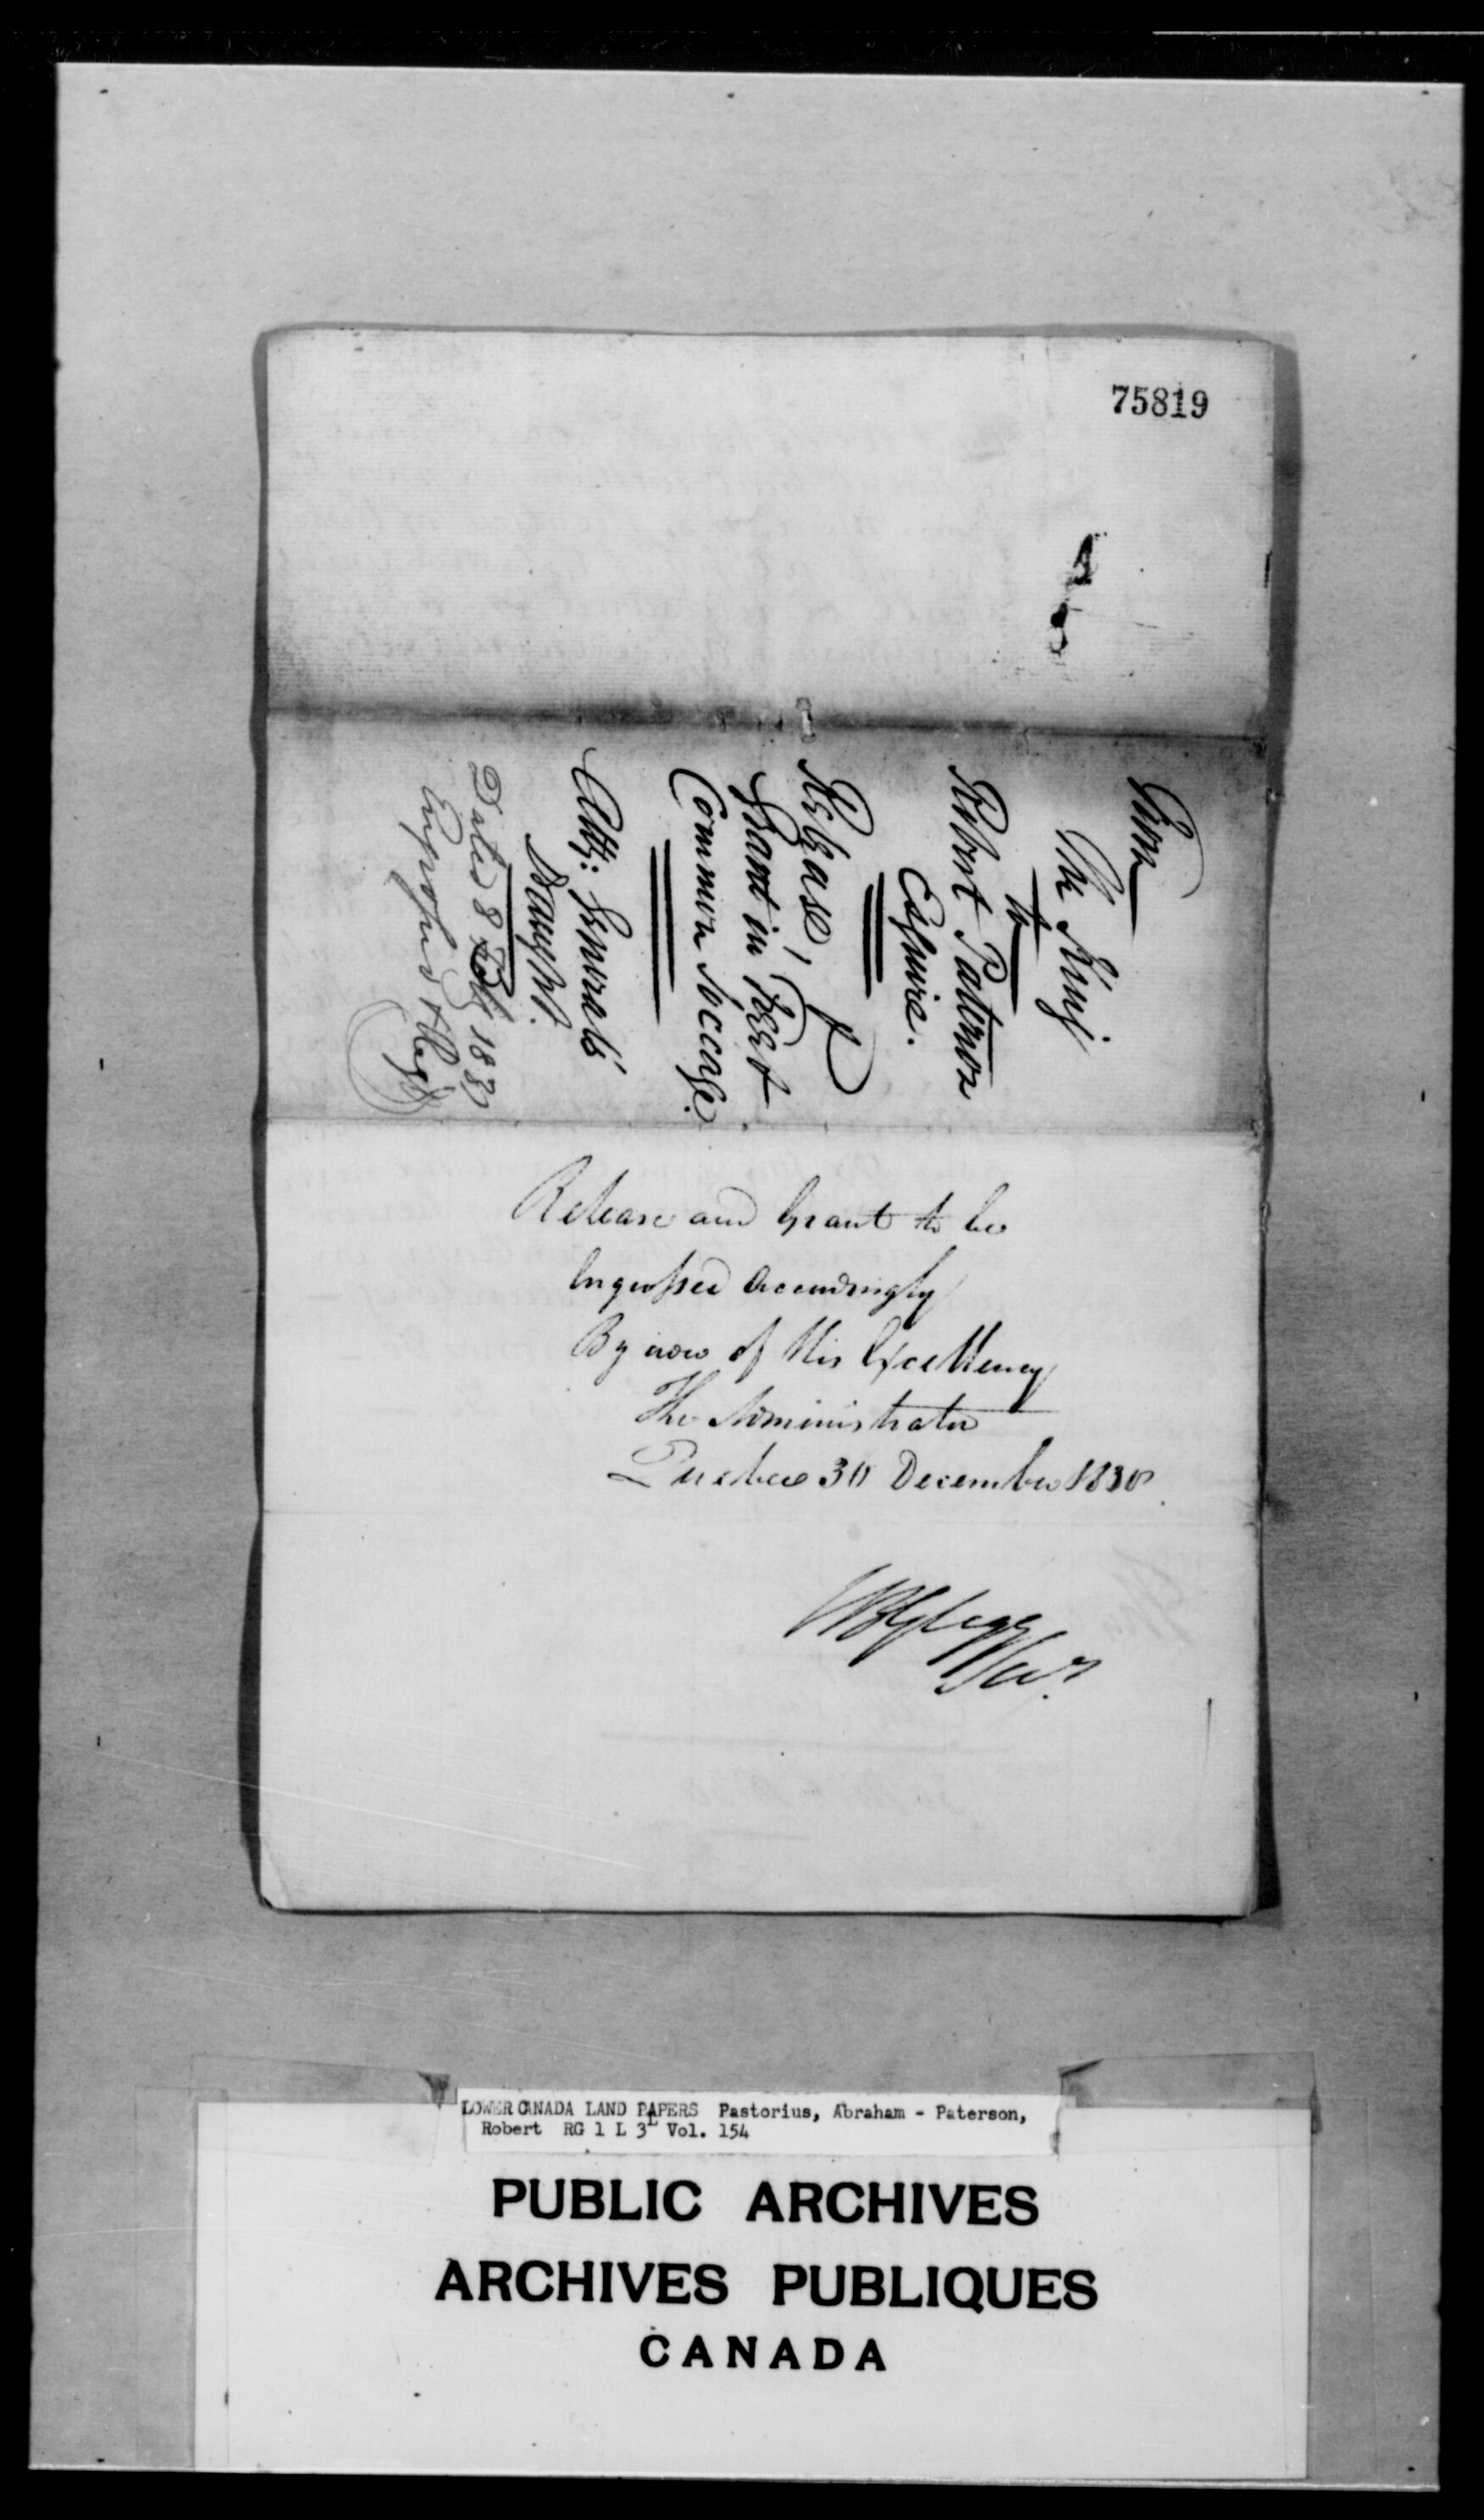 75819
The King
to
Robert Patterson
Esquire.
Release, &
Grant in Free &
Common Soccage.
Atty: General's
Draught.
Dated 8 Feby 183
Engrossed
Release and Grant to be
Engrossed accordingly
By
of His Excellency
The Administrator
Quebec 30 December 1830
LOWER CANADA LAND PAPERS Pastorius, Abraham - Paterson,
Robert RG 1 L 3L Vol. 154
PUBLIC ARCHIVES
ARCHIVES PUBLIQUES
CANADA